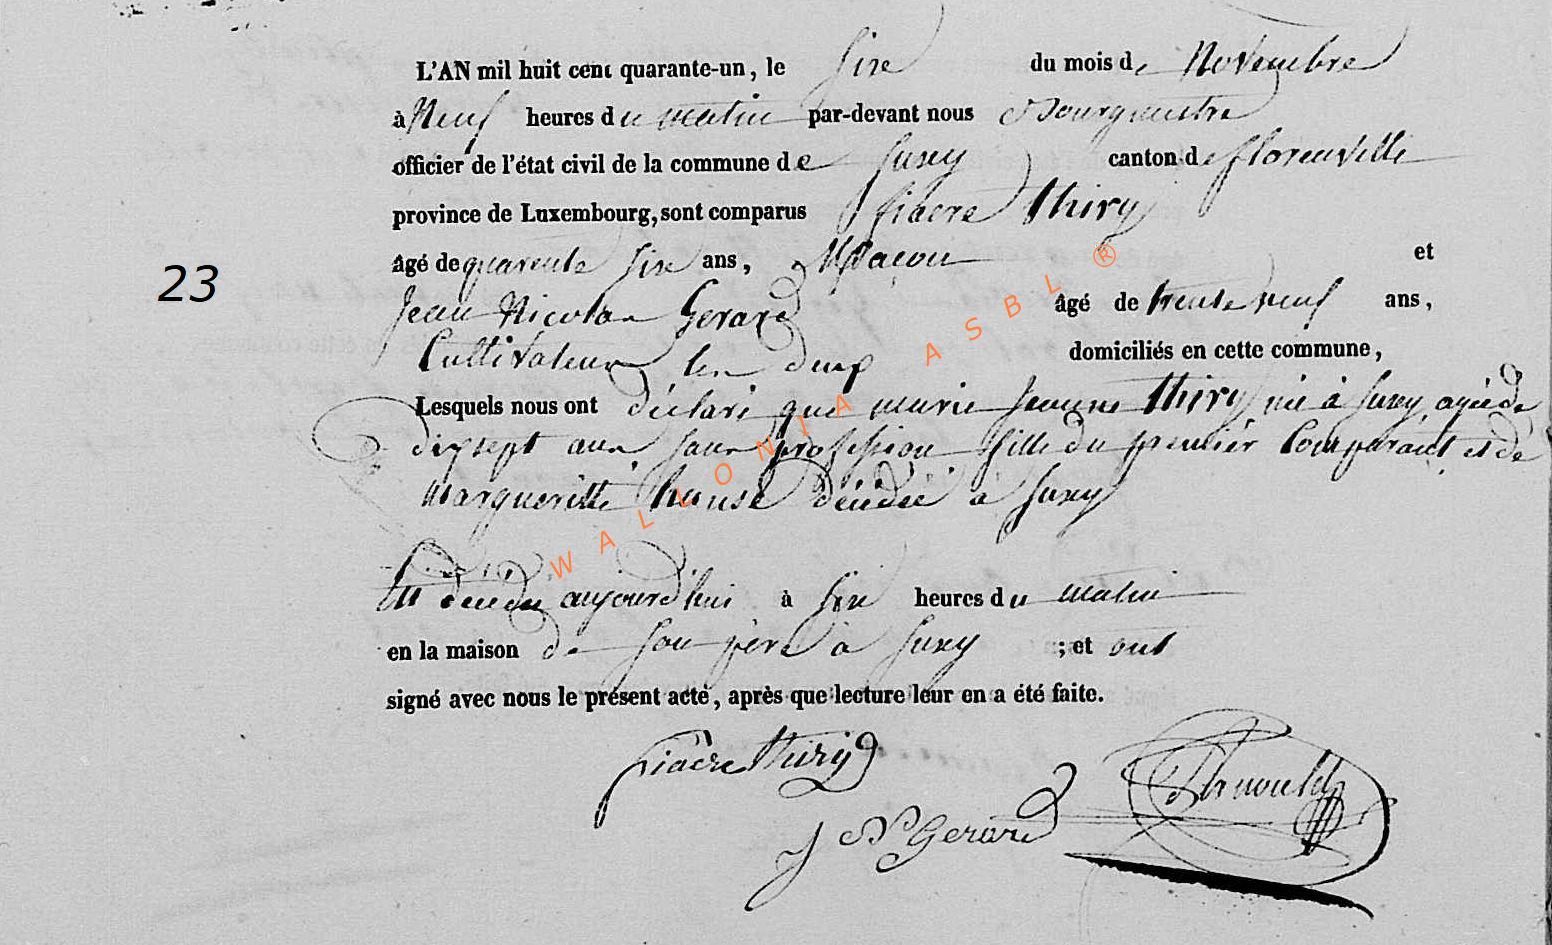 L'AN mil huit cent quarante-un, le sixe du mois de Novembre
à Neuf heures du matin par-devant nous Bourgmestre
officier de l'état civil de la commune de Suxy canton de florenville
province de Luxembourg, sont comparus fiacre thiry
23
âgé de quarente sixe ans, Maçon et
Jean Nicolas Gerard âgé de trente neuf ans,
Cultivateur les deux domiciliés en cette commune,
Lesquels nous ont déclaré que marie Jeanne thiry né à Suxy agée de
dixsept ans sans profession fille du premier Comparant et de
margueritte hause décédée a Suxy
est décédée aujourd'hui à sixe heures du matin
en la maison de son père à Suxy ; et ont
signé avec nous le présent acte, après que lecture leur en a été faite.
fiacre thiry
J N Gerard
Arnould
WALLONIA ASBL ®